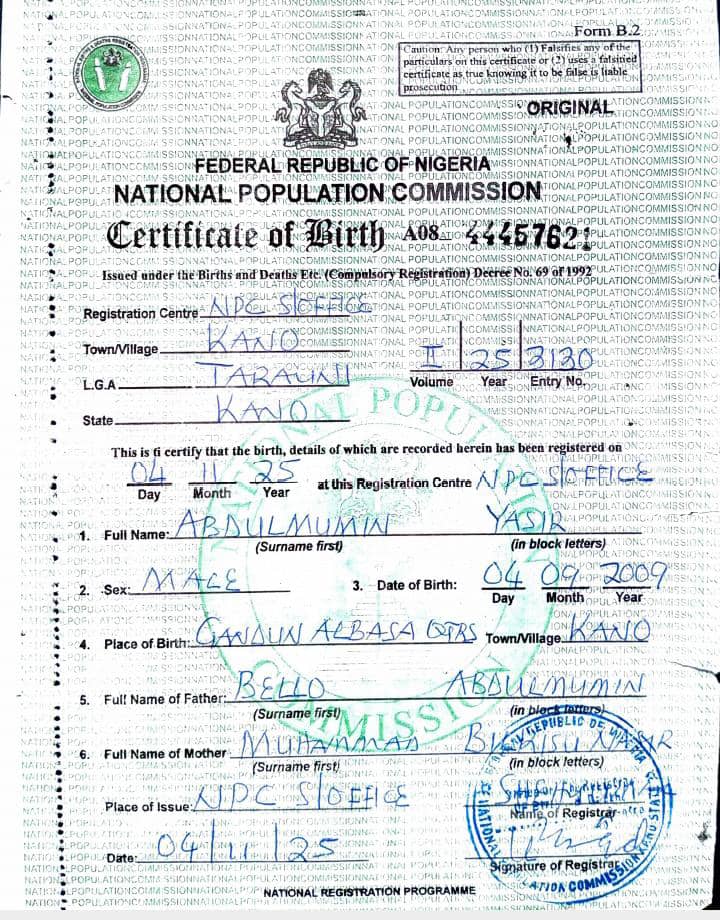 Form B.2
Caution: Any person who (1) Falsifies any of the
particulars on this certificate or (2) uses a falsified
certificate as true knowing it to be false is liable
prosecution
ORIGINAL
FEDERAL REPUBLIC OF NIGERIA
NATIONAL POPULATION COMMISSION
Certificate of Birth A08
Issued under the Births and Deaths Etc. (Compulsory Registration) Decree No. 69 of 1992
Registration Centre NPC S/OFFICE
Town/Village KANO
II 25 3130
Volume Year Entry No.
L.G.A TARAUNI
State KANO
This is ti certify that the birth, details of which are recorded herein has been registered on
04 11 25 at this Registration Centre NPC S/OFFICE
Day Month Year
1. Full Name: ABDULMUMIN YASIR
(Surname first) (in block letters)
2. Sex: MALE 3. Date of Birth: 04 09 2009
Day Month Year
4. Place of Birth: GANDUN ALBASA QTRS Town/Village KANO
5. Full Name of Father: BELLO ABDULMUMIN
(Surname first) (in block letters)
6. Full Name of Mother MUHAMMAD
(Surname first) (in block letters)
Place of Issue: NPC S/OFFICE
Name of Registrar
Date: 04/11/25
Signature of Registrar
NATIONAL REGISTRATION PROGRAMME
NATIONAL POPULATION COMMISSION